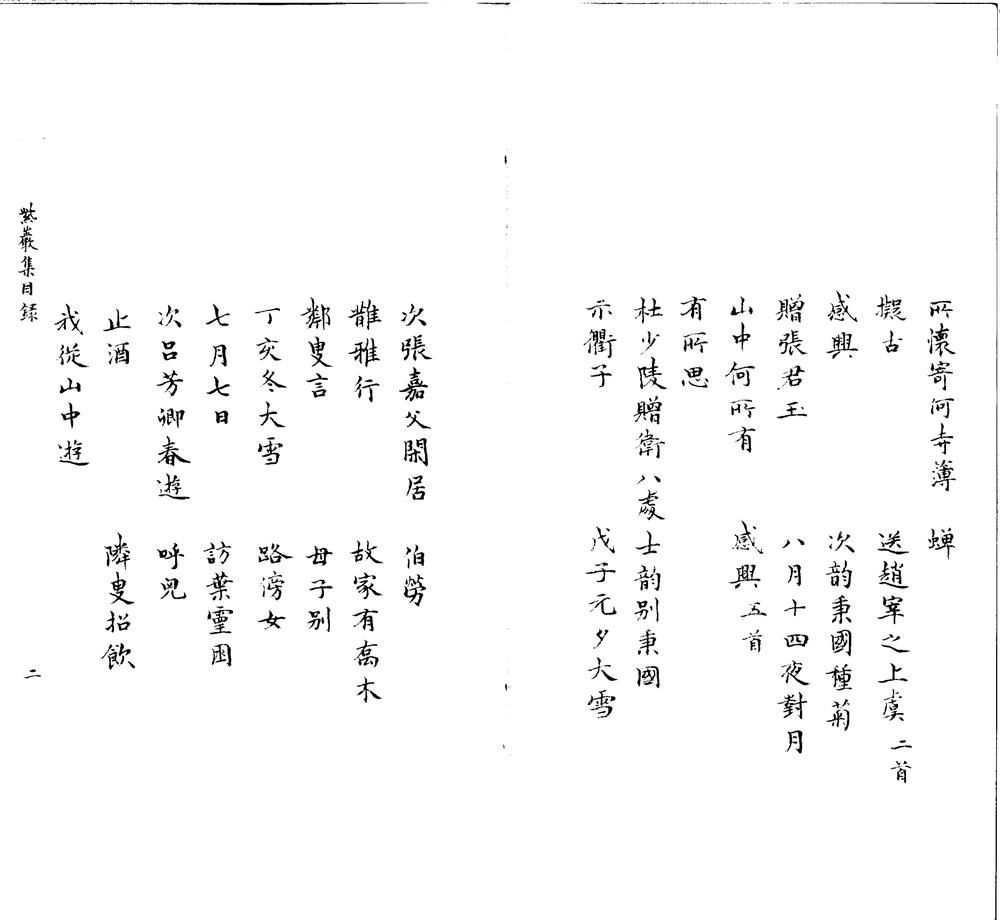 所懷寄何寺簿　蟬
擬古　送趙宰之上虞二首
感興　次韵秉國種菊
贈張君玉　八月十四夜對月
山中何所有　感興五首
有所思
杜少陵贈衛八處士韵别秉國
示衢子　戊子元夕大雪
次張嘉父閑居　伯勞
雝雅行　故家有喬木
鄰叟言　母子别
丁亥冬大雪　路滂女
七月七日　訪葉靈囷
次吕芳卿春遊　呼兒
止酒　隣叟招飲
我從山中遊
紫巖集目録　二